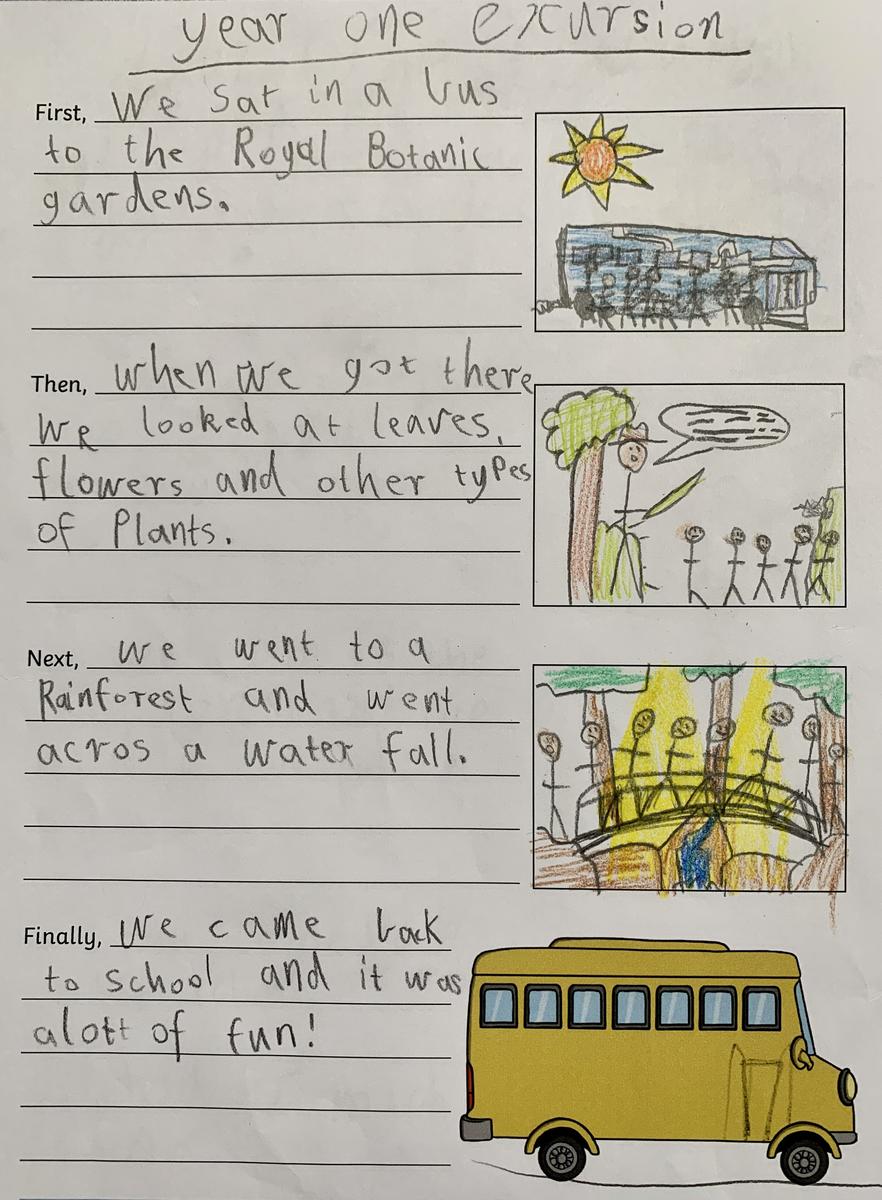 year one excursion
First, We sat in a bus
to the Royal Botanic
gardens.
Then, when we got there
we looked at leaves,
flowers and other types
of Plants.
Next, we went to a
Rainforest and went
acros a water fall.
Finally, We came back
to school and it was
alott of fun!